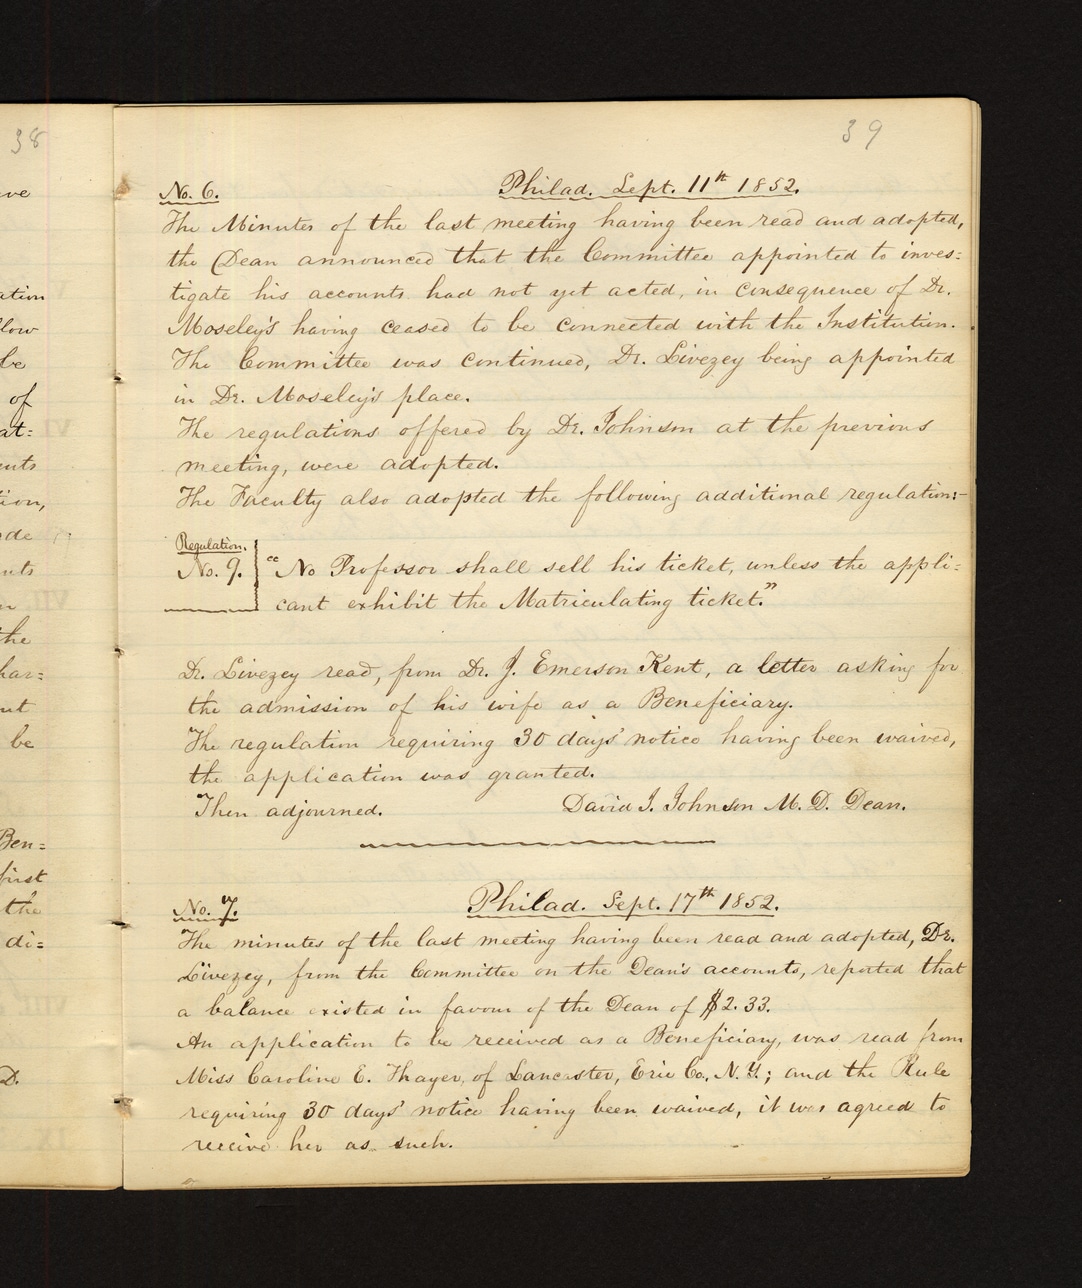 38
ve
ation
low
be
of
at=
ents
tion,
ade
nts
n
the
har=
nt
be
Ben=
first
the
di=
D.
39
No. 6. Philad. Sept. 11th 1852.
The Minutes of the last meeting having been read and adopted,
the Dean announced that the Committee appointed to inves=
tigate his accounts had not yet acted, in consequence of Dr.
Moseley's having ceased to be connected with the Institution.
The Committee was continued, Dr. Livezey being appointed
in Dr. Moseley's place.
The regulations offered by Dr. Johnson at the previous
meeting, were adopted.
The Faculty also adopted the following additional regulation:-
Regulation.
No. 9. "No Professor shall sell his ticket, unless the appli=
cant exhibit the Matriculating ticket."
Dr. Livezey read, from Dr. J. Emerson Kent, a letter asking for
the admission of his wife as a Beneficiary.
The regulation requiring 30 days' notice having been waived,
the application was granted.
Then adjourned. David J. Johnson M. D. Dean.
No. 7. Philad. Sept. 17th 1852.
The minutes of the last meeting having been read and adopted, Dr.
Livezey, from the Committee on the Dean's accounts, reported that
a balance existed in favour of the Dean of $2.33.
An application to be received as a Beneficiary, was read from
Miss Caroline E. Thayer, of Lancaster, Erie Co., N.Y.; and the Rule
requiring 30 days' notice having been waived, it was agreed to
receive her as such.